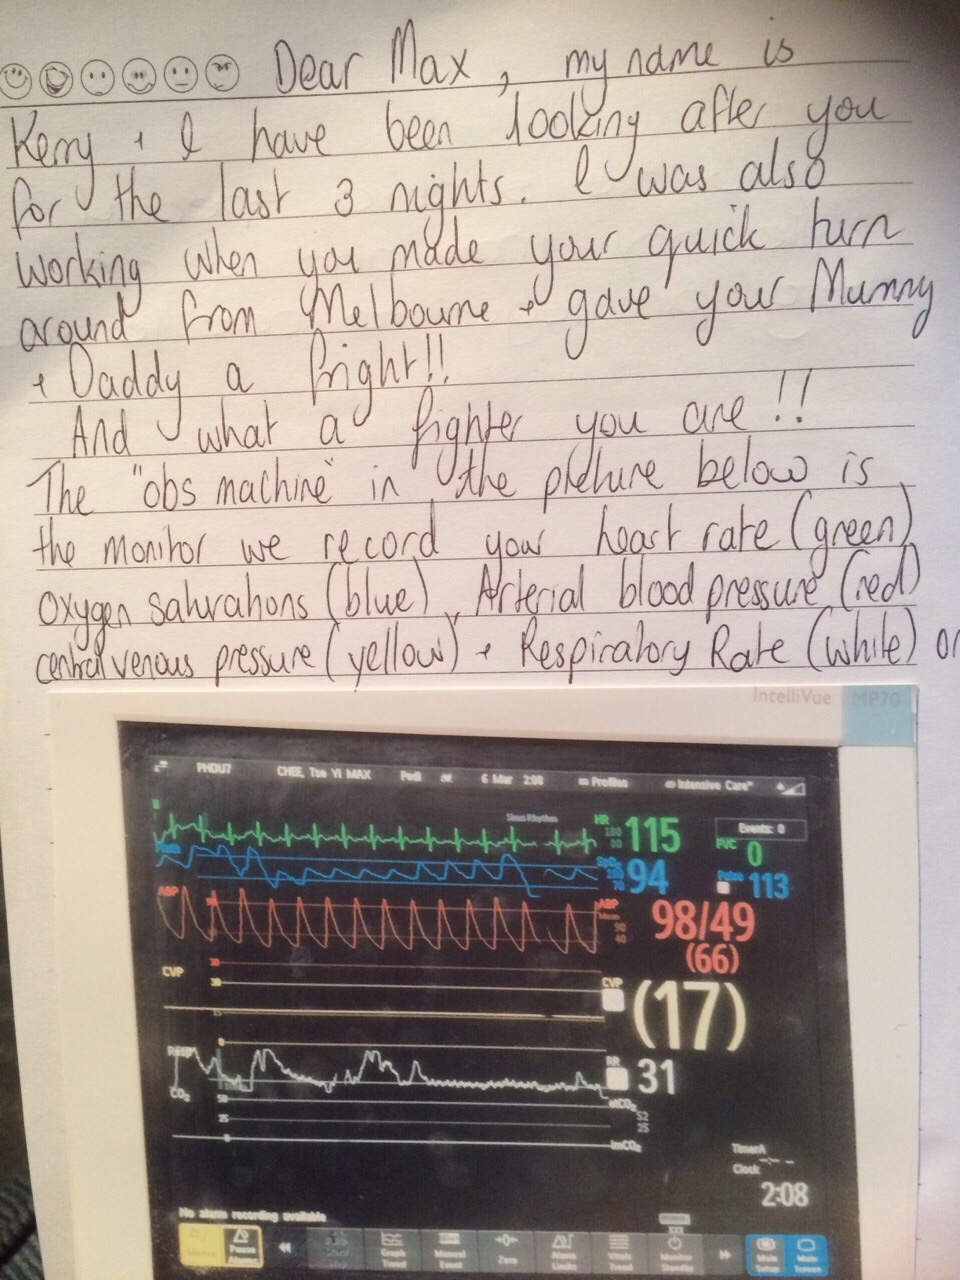 Dear Max, my name is
Kerry + I have been looking after you
for the last 3 nights. I was also
working when you made your quick turn
around from Melbourne + gave your Mummy
+ Daddy a fright!!
And what a fighter you are!!
The "obs machine" in the picture below is
the monitor we record your heart rate (green)
oxygen saturations (blue), Arterial blood pressure (red)
central venous pressure (yellow) + Respiratory Rate (white) on
IntelliVue MP70
PHDU7 CHEE, Tze YI MAX Pedi 6 Mar 2:08 Profiles Intensive Care
II Sinus Rhythm HR 115 Events: 0
PVC 0
94 Pulse 113
ABP ABP 98/49
(66)
CVP CVP (17)
Resp RR 31
CO₂ 50 etCO₂ 52
25 25
0 imCO₂
TimerA -:--
Clock
2:08
No alarm recording available
Silence Pause Alarms Graph Trend Manual Event Zero Alarm Limits Vitals Trend Monitor Standby Main Setup Main Screen